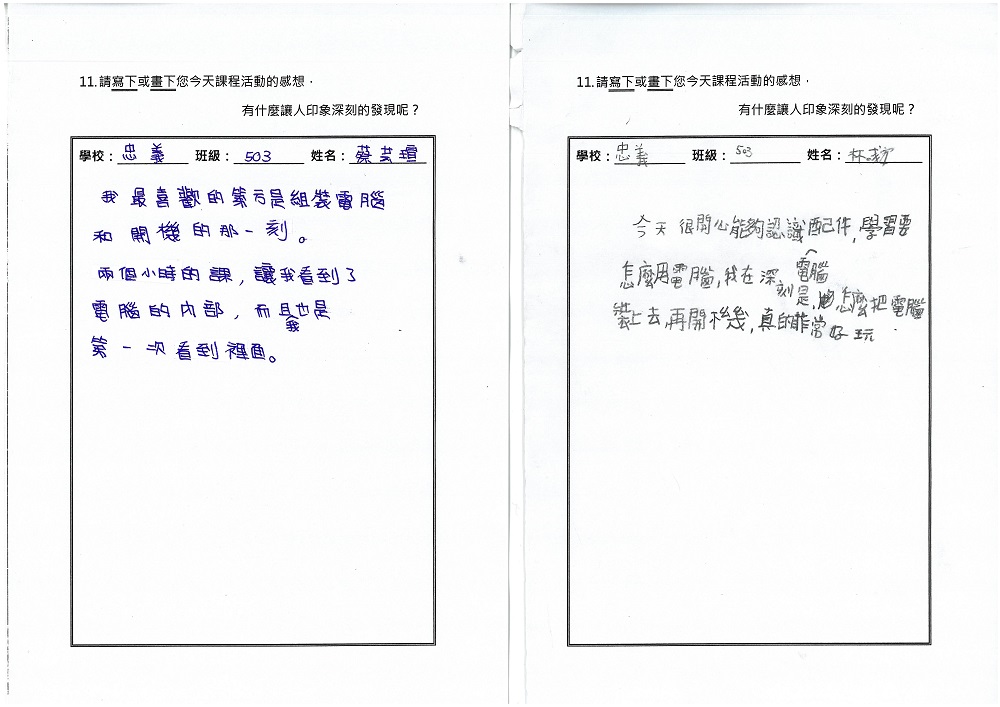 11.請寫下或畫下您今天課程活動的感想，
有什麼讓人印象深刻的發現呢？
學校：忠義 班級：503 姓名：蔡芸瑄
我最喜歡的第方是組裝電腦
和開機的那一刻。
兩個小時的課，讓我看到了
電腦的內部，而且我也是
第一次看到裡面。
11.請寫下或畫下您今天課程活動的感想，
有什麼讓人印象深刻的發現呢？
學校：忠義 班級：503 姓名：林
今天很開心能夠認識電腦配件，學習要
怎麼用電腦，我在深刻是，怎麼把電腦
裝上去再開機，真的非常好玩